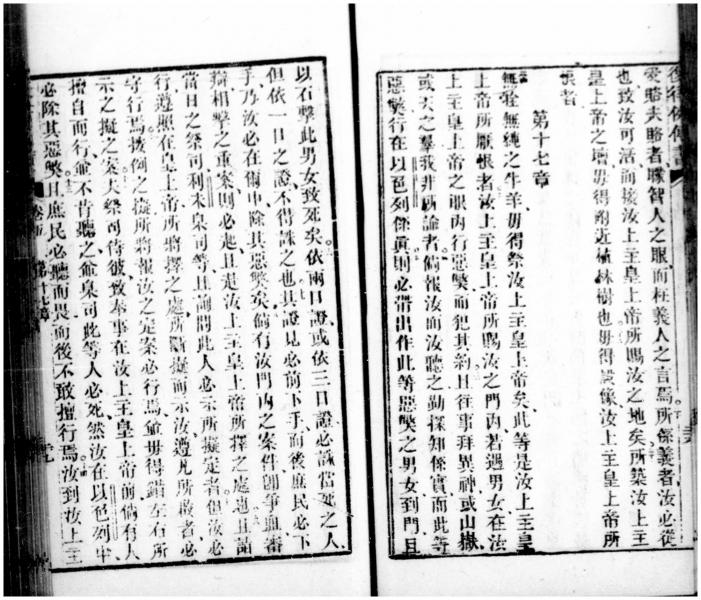 復律例傳書
愛賂夫賂者矇智人之眼而枉義人之言焉所係義者汝必從
也致汝可活而接汝上主皇上帝所賜汝之地矣所築汝上主
皇上帝之壇毋得附近植林樹也毋得設像汝上主皇上帝所
恨者
第十七章
無瑕無疵之牛羊毋得祭汝上主皇上帝矣此等是汝上主皇
上帝所厭恨者汝上主皇上帝所賜汝之門內若遇男女在汝
上主皇上帝之眼內行惡獘而犯其約且往事拜異神或山嶽
或天之羣我非所諭者倘報汝而汝聽之勤探知係實而此等
惡獘行在以色列係真則必帶出作此等惡獘之男女到門且
以石擊此男女致死矣依兩口證或依三口證必誅當死之人
但依一口之證不得誅之也其證見必前下手而後庶民必下
手乃汝必在爾中除其惡獘矣倘有汝門內之案件卽爭血審
辯相擊之重案則必起且赴汝上主皇上帝所擇之處也且詣
當日之祭司利未臬司等且詢問此人必示所擬定者但汝必
行遵照在皇上帝所將擇之處所斷擬而示汝遵凡所教者必
守行焉按例之擬所將報汝之定案必行焉並毋得錯左右所
示之擬之案夫祭司侍彼致奉事在汝上主皇上帝前倘有人
擅自而行並不肯聽之並臬司此等人必死然汝在以色列中
必除其惡獘且庶民必聽而畏而後不敢擅行焉汝到汝上主
卷五
第十七章